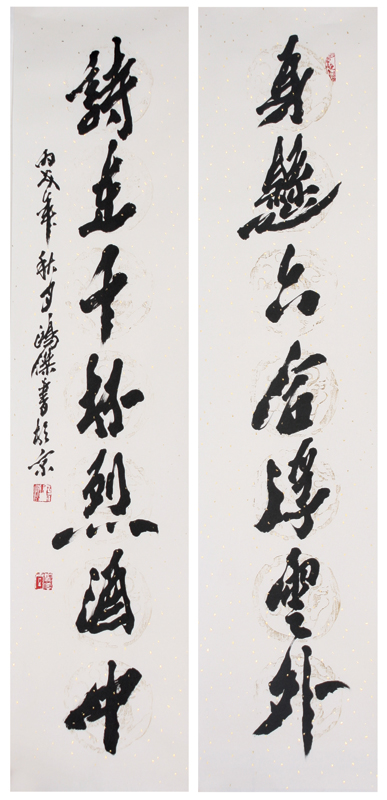 身懸六合浮雲外
詩在千杯烈酒中
丙戌年秋月鴻傑書於京